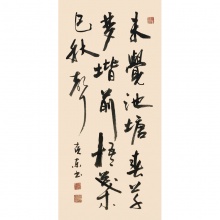 未覺池塘春草
夢堦前梧葉
已秋聲